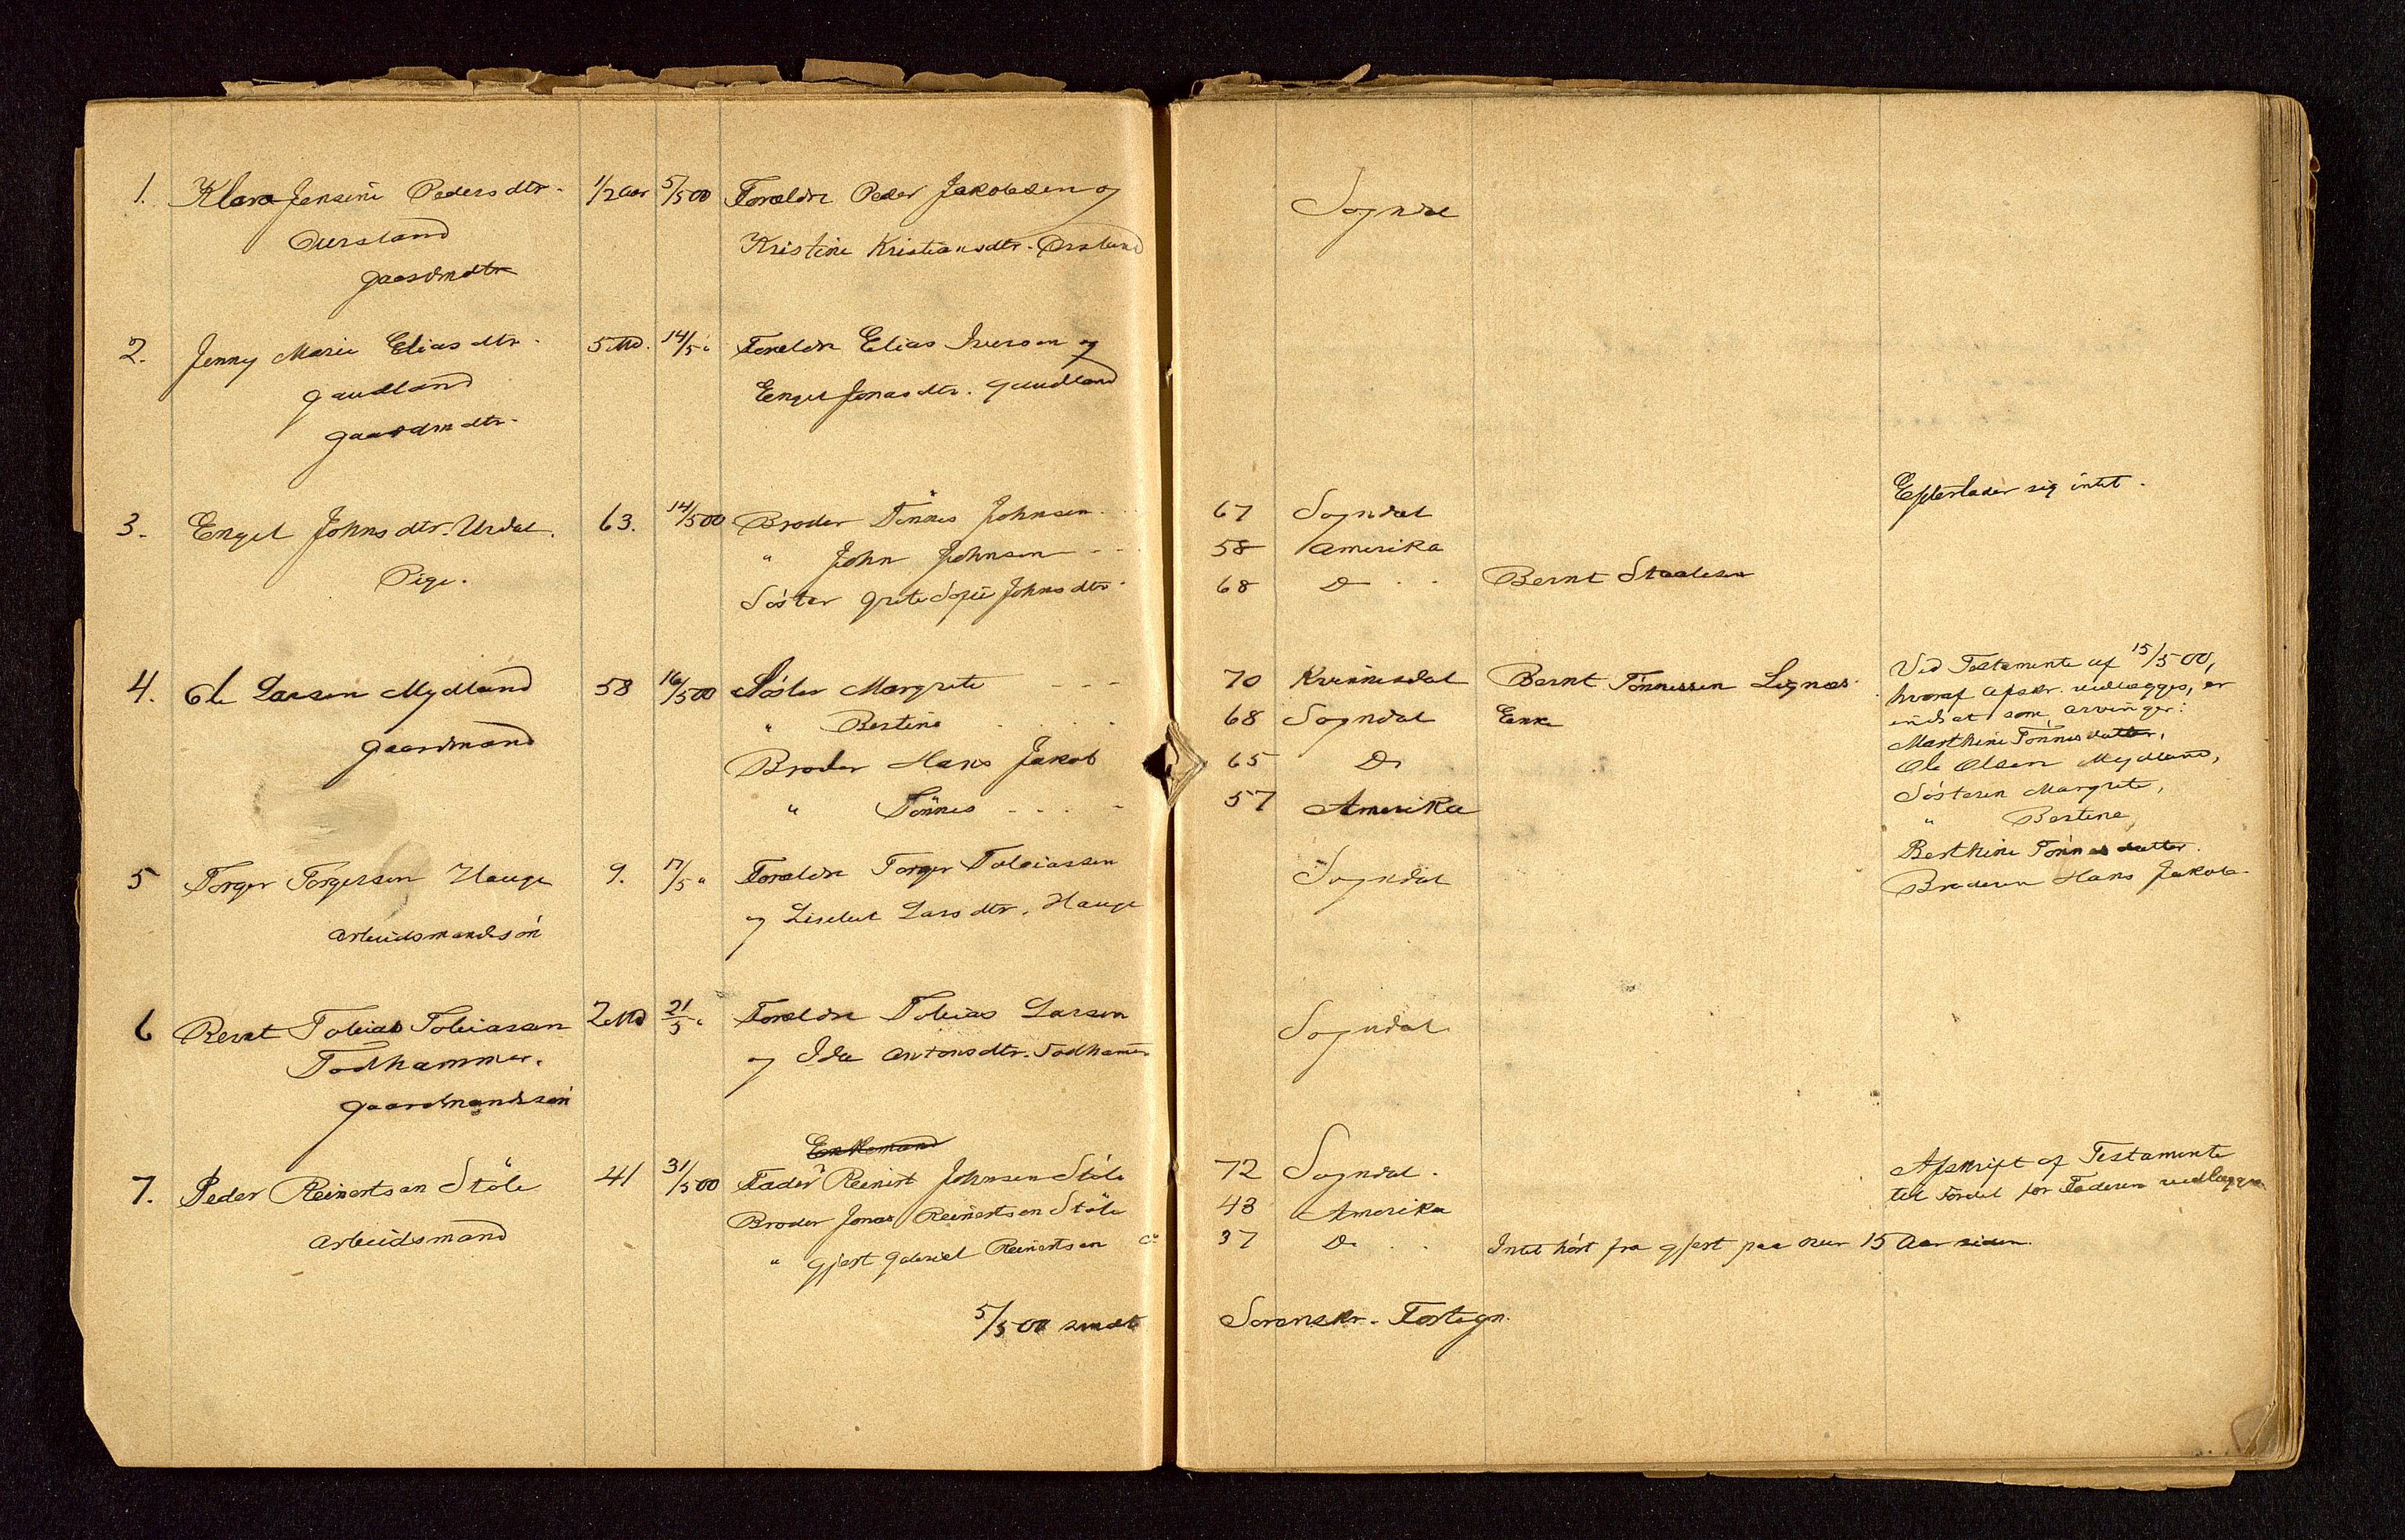 1. Klara Jensine Pedersdtr. 1/2 aar 5/5 00 Foreldre Peder Jakobsen og
Øversland Kristine Kristiansdtr. Ørsland
gaardmdtr
Sogndal
2. Jenny Marie Eliasdtr. 5 Md. 14/5 " Foreldre Elias Iversen og
gaudland Engel Jonasdtr. gaudland
gaardmdtr.
3. Engel Johnsdtr. Urdal. 63. 14/5 00 Broder Tönnes Johnsen 67 Sogndal Efterlader sig intet.
Pige. " John Johnsen 58 Amerika
Söster Grete Sofie Johnsdtr. 68 Do Bernt Staalesen
4. Ole Larsen Mydland 58 16/5 00 Söster Margrete 70 Kvinnesdal Bernt Tönnessen Lignes
gaardmand " Bertine 68 Sogndal Enke
Broder Hans Jakob 65 Do
" Tönnes 57 Amerika
Ved Testamente af 15/5 00,
hvoraf Afskr. vedlægges, er
indsat som arvinger:
Marthine Tönnesdatter,
Ole Olsen Mydland,
Sösteren Margrete,
" Bertine
Berthine Tönnesdatter.
Broderen Hans Jakob.
5 Torger Torgersen Hauge 9. 17/5 " Foreldre Torger Tobiassen
arbeidsmandsön og Lisebet Larsdtr. Hauge
Sogndal
6 Bernt Tobias Tobiassen 2 Md 21/5 " Foreldre Tobias Larsen
Fodhammer. og Ida Antonsdtr. Fodhamer
gaardmandsön
Sogndal
Enkemand
7. Peder Reinertsen Stöle 41 31/5 00 Fader Reinert Johnsen Stöle 72 Sogndal.
arbeidsmand Broder Jonas Reinertsen Stöle 43 Amerika
" Gjert Gabriel Reinertsen 37 Do Intet hört fra Gjert paa over 15 Aar siden.
Afskrift af Testamente
til Fordel for Faderen vedlægges
5/5 00 sendt Sorenskr. Fortegn.